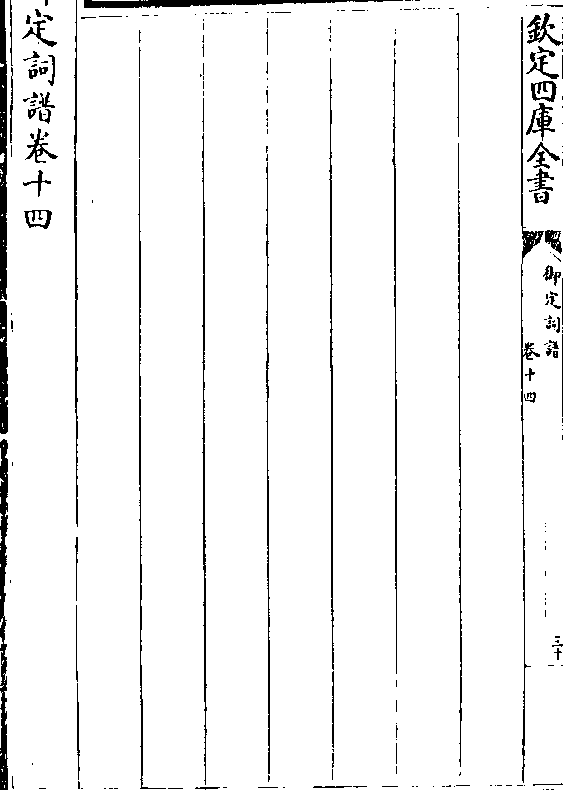 欽定四庫全書
御定詞譜
卷十四
三十
定詞譜卷十四